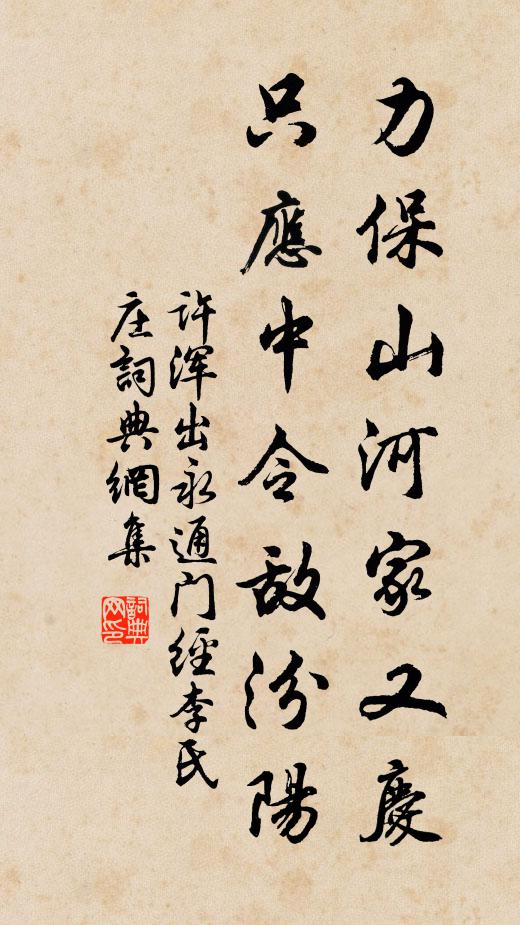 力保山河家又慶
只應中令敵汾陽
许渾出永通门經李氏
庄詞典網集
詞典
网印